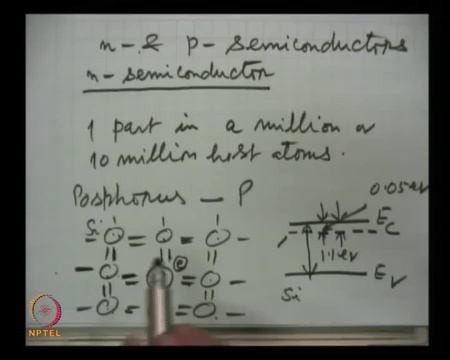 n- & p- semiconductors
n- semiconductor
1 part in a million or
10 million host atoms.
Posphorus - P
0.05 eV
Si
e
Ec
1.1 eV
Si
Ev
NPTEL